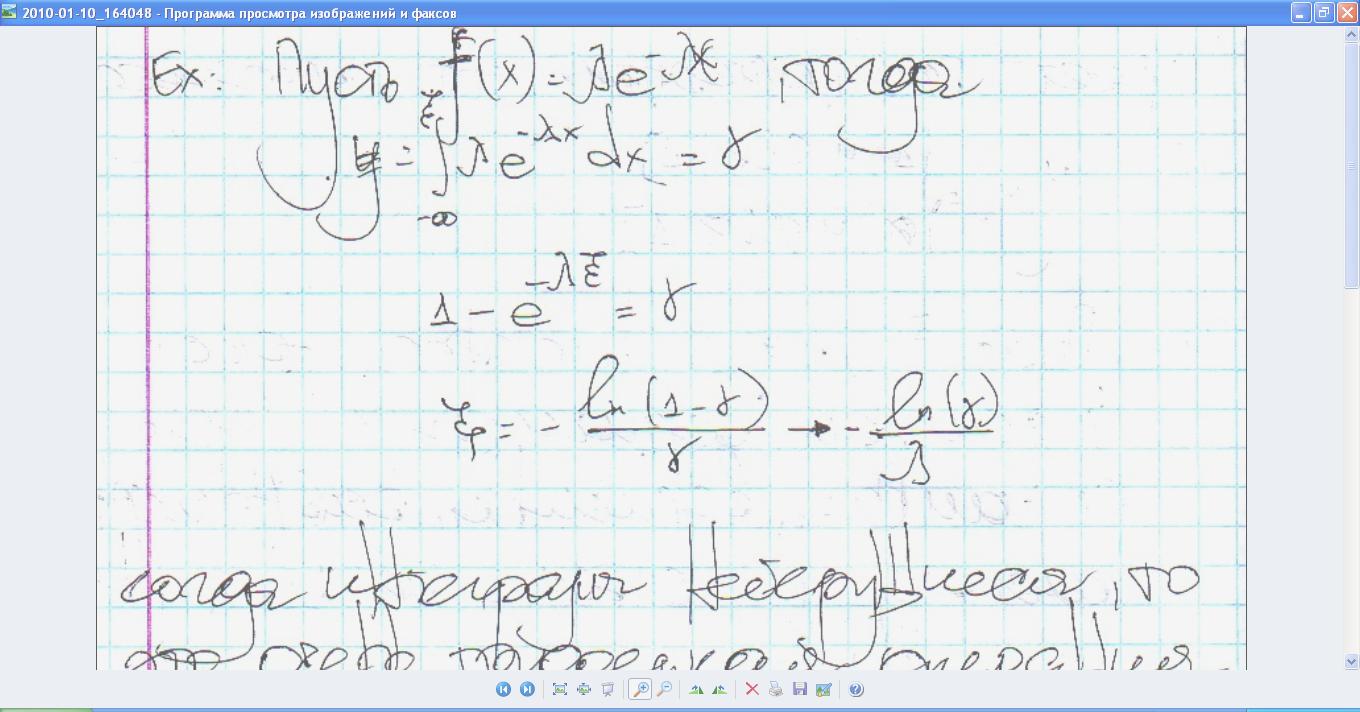 2010-01-10_164048 - Программа просмотра изображений и факсов
Ex: Пусть f(x) = λe^{-λx}, тогда
y = ∫_{-∞}^{ξ} λe^{-λx} dx = γ
1 - e^{-λξ} = γ
ξ = - ln(1-γ)/γ → - ln(γ)/λ
когда интеграл не берущийся, то
это очень